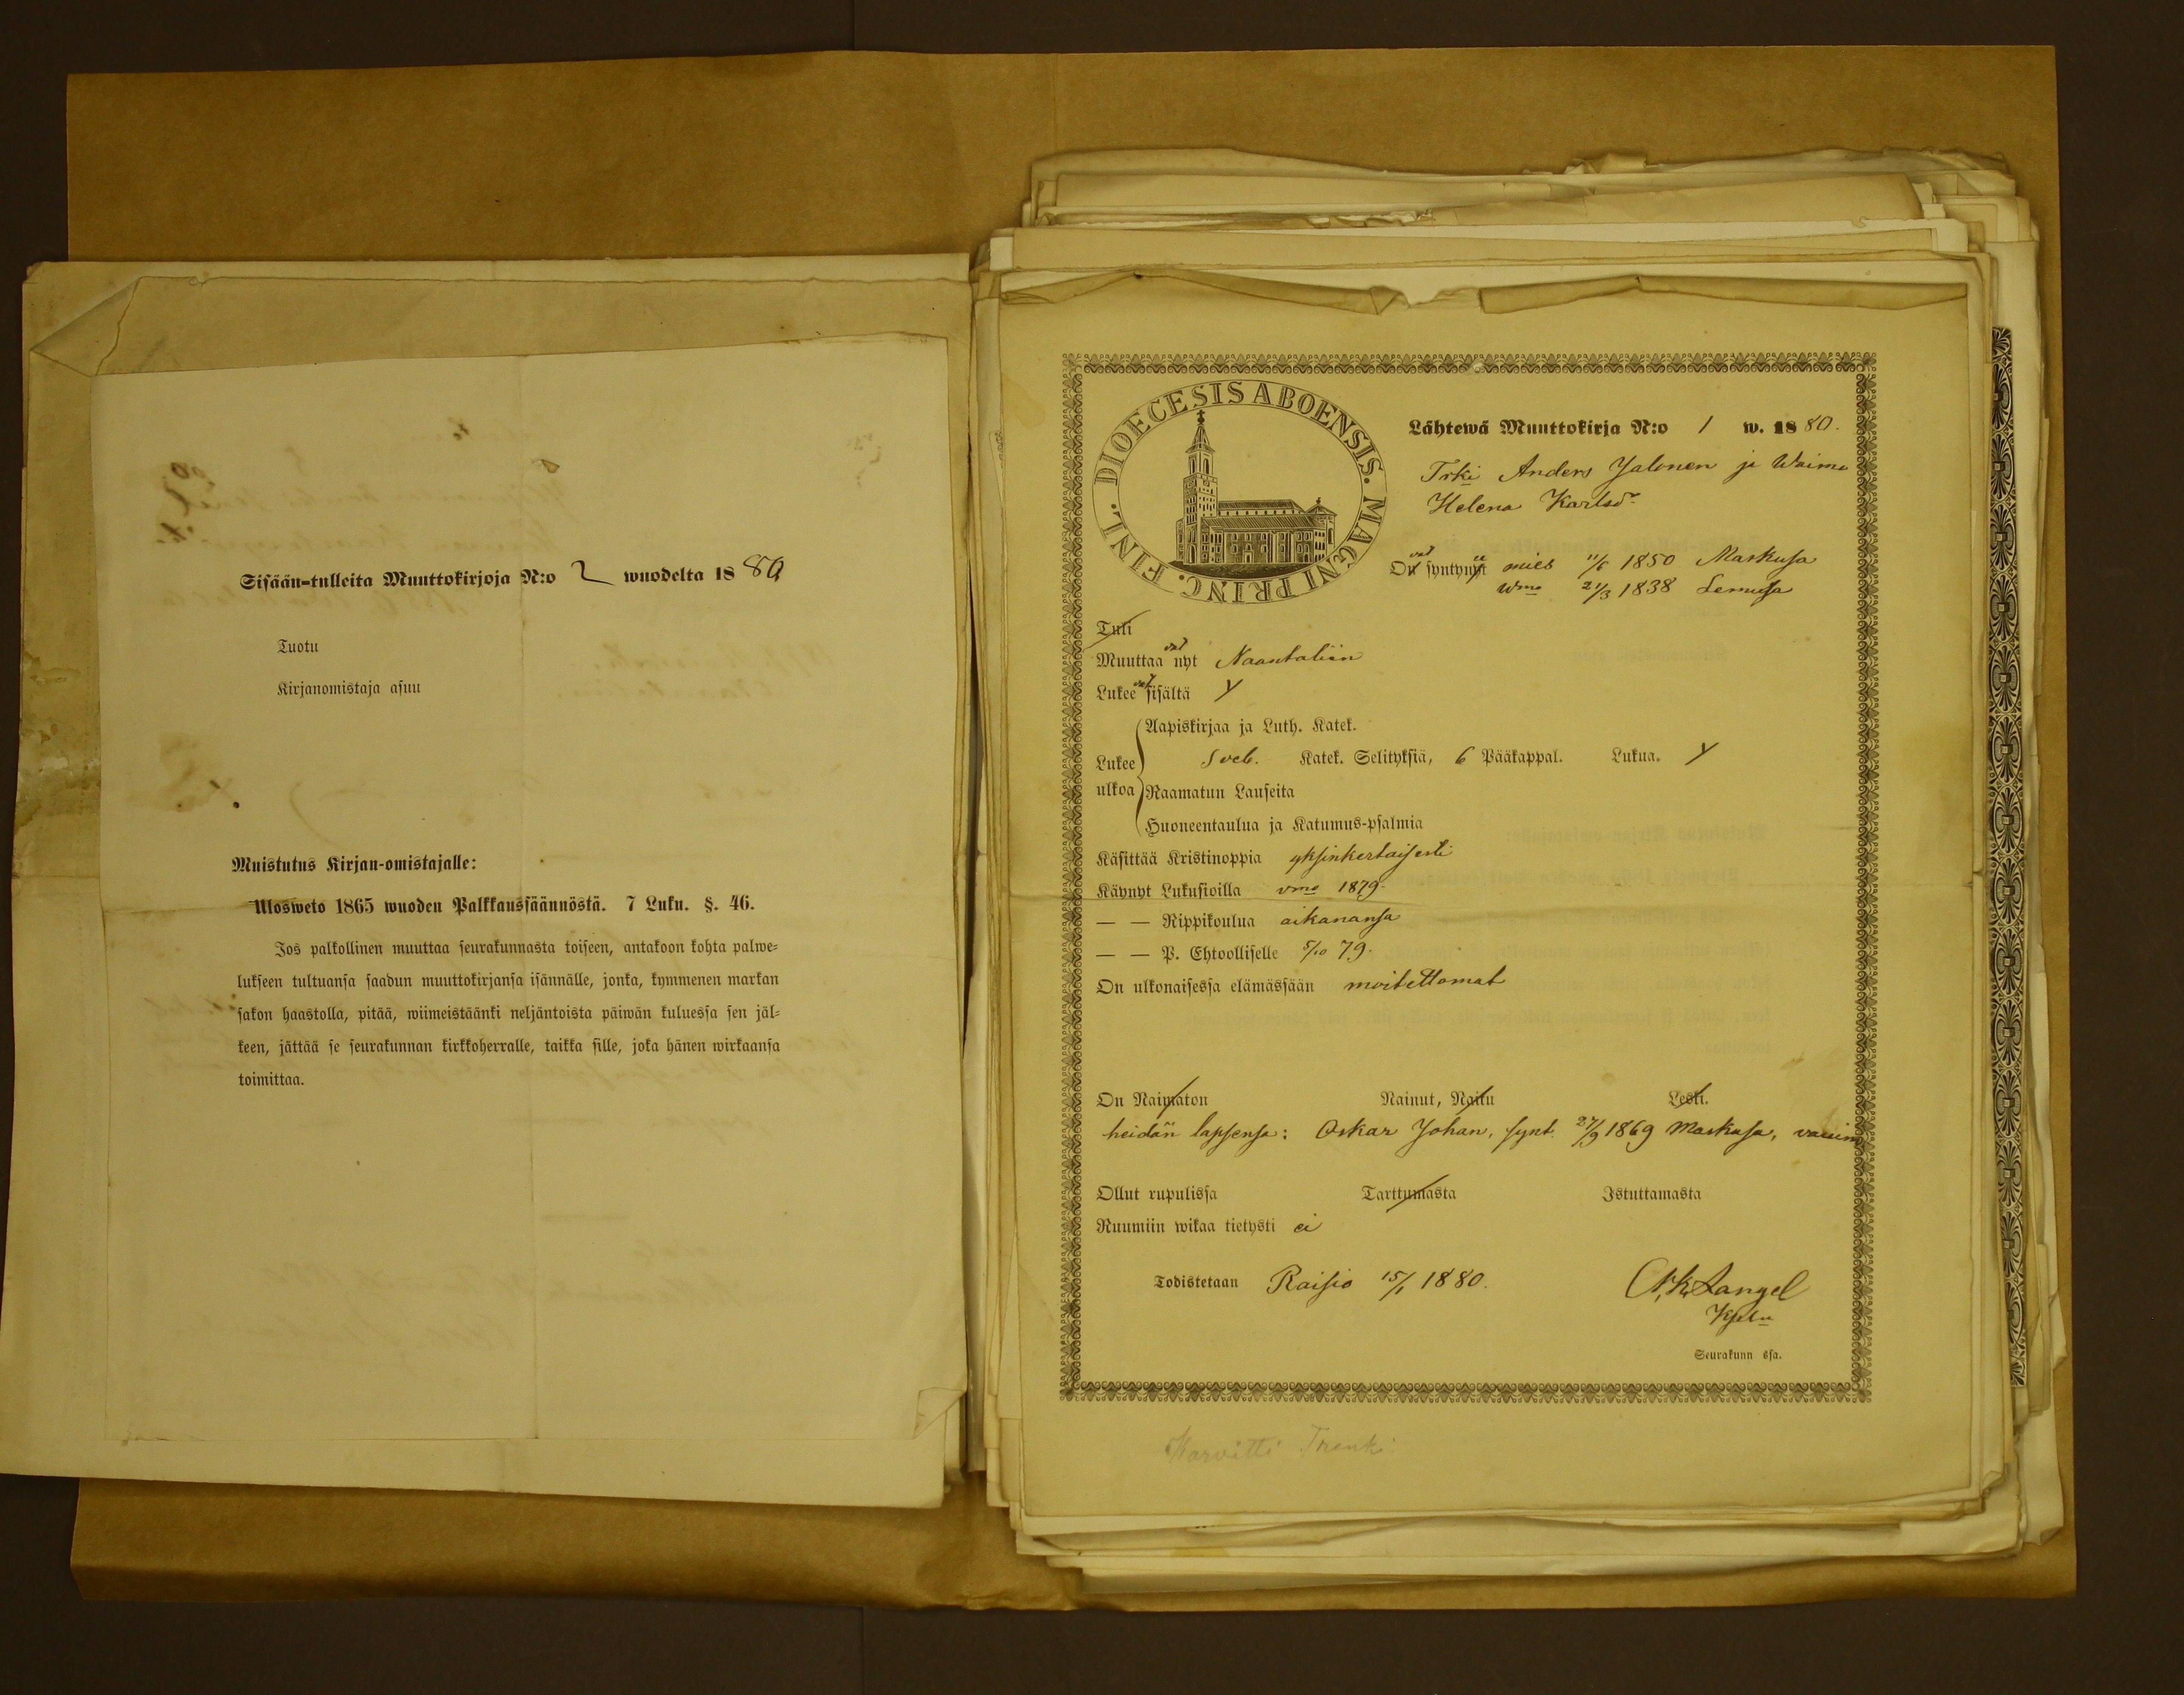 Sisään-tulleita Muuttokirjoja N:o 2 wuodelta 1880
Tuotu
Kirjanomistaja asuu
Muistutus Kirjan-omistajalle:
Ulosweto 1865 wuoden Palkkaussäännöstä. 7 Luku. §. 46.
Jos palkollinen muuttaa seurakunnasta toiseen, antakoon kohta palwe-
lukseen tultuansa saadun muuttokirjansa isännälle, jonka, kymmenen markan
sakon haastolla, pitää, wiimeistäänki neljäntoista päiwän kuluessa sen jäl-
keen, jättää se seurakunnan kirkkoherralle, taikka sille, joka hänen wirkaansa
toimittaa.
DIOECESIS ABOENSIS. MAGNI PRINC. FINL.
Lähtewä Muuttokirja N:o 1 w. 1880.
Trki Anders Jalonen ja Waimo
Helena Karlsdr
Ovat syntynyt mies 11/6 1850 Maskusa
Wmo 21/3 1838 Lemusa
Tuli
Muuttaavat nyt Naantaliin
Lukeevat sisältä y
Aapiskirjaa ja Luth. Katek.
Lukee ulkoa Sveb. Katek. Selityksiä, 6 Pääkappal. Lukua. y
Raamatun Lauseita
Huoneentaulua ja Katumus-psalmia
Käsittää Kristinoppia yksinkertaisesti
Käynyt Lukusioilla vmo 1879.
— — Rippikoulua aikanansa
— — P. Ehtoolliselle 5/10 79.
On ulkonaisessa elämässään moitettomat
On Naimaton Nainut, Naitu Leski.
heidän lapsensa: Oskar Johan, synt. 27/9 1869 Maskusa,
Ollut rupulissa Tarttumasta Istuttamasta
Ruumiin wikaa tietysti ei
Todistetaan Raisio 15/1 1880.
Langel
Seurakunn ssa.
Karvitti Trenki